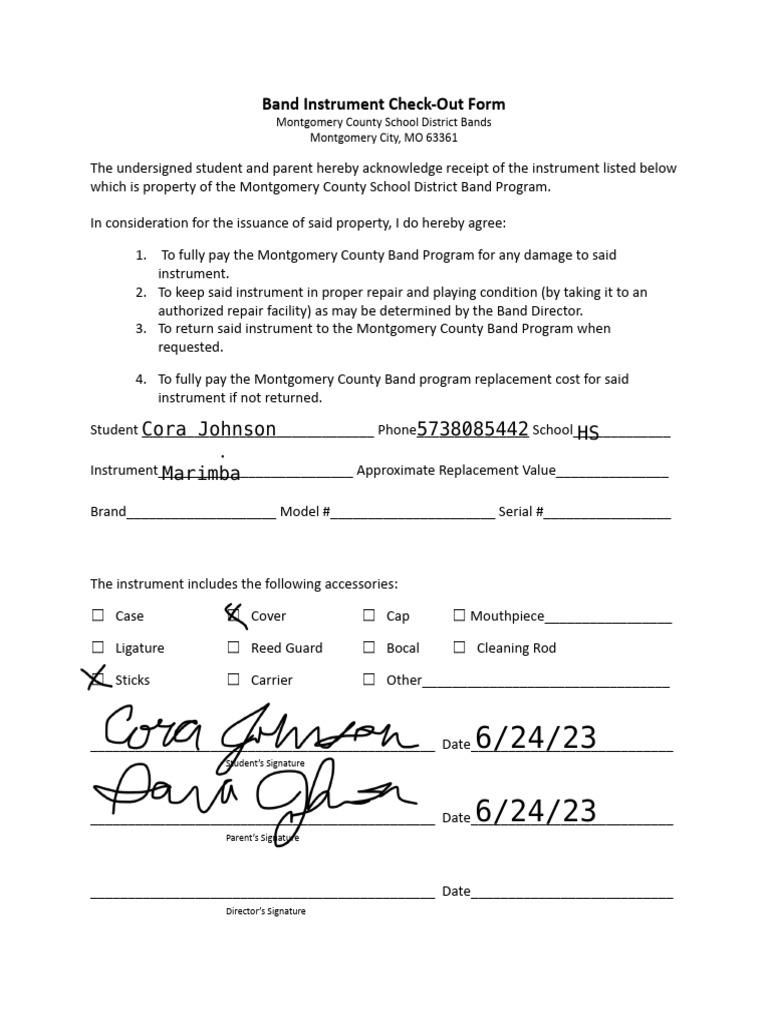 Band Instrument Check-Out Form
Montgomery County School District Bands
Montgomery City, MO 63361
The undersigned student and parent hereby acknowledge receipt of the instrument listed below
which is property of the Montgomery County School District Band Program.
In consideration for the issuance of said property, I do hereby agree:
1. To fully pay the Montgomery County Band Program for any damage to said
instrument.
2. To keep said instrument in proper repair and playing condition (by taking it to an
authorized repair facility) as may be determined by the Band Director.
3. To return said instrument to the Montgomery County Band Program when
requested.
4. To fully pay the Montgomery County Band program replacement cost for said
instrument if not returned.
Student Cora Johnson Phone 5738085442 School HS
.
Instrument Marimba Approximate Replacement Value
Brand Model # Serial #
The instrument includes the following accessories:
☐ Case ☒ Cover ☐ Cap ☐ Mouthpiece
☐ Ligature ☐ Reed Guard ☐ Bocal ☐ Cleaning Rod
☒ Sticks ☐ Carrier ☐ Other
Cora Johnson Date 6/24/23
Student's Signature
Sara Johnson Date 6/24/23
Parent's Signature
Date
Director's Signature